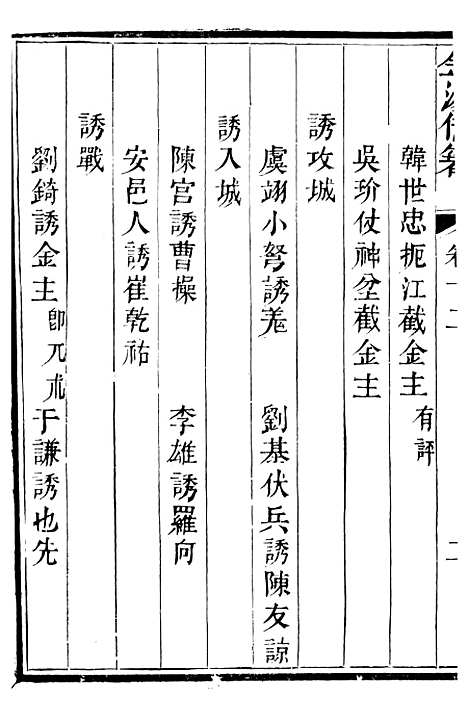 卷十二
二
韓世忠扼江截金主 有評
吳玠仗神坌截金主
誘攻城
虞翊小弩誘羌 劉基伏兵誘陳友諒
誘入城
陳宮誘曹操 李雄誘羅向
安邑人誘崔乾祐
誘戰
劉錡誘金主 卽兀朮 于謙誘也先